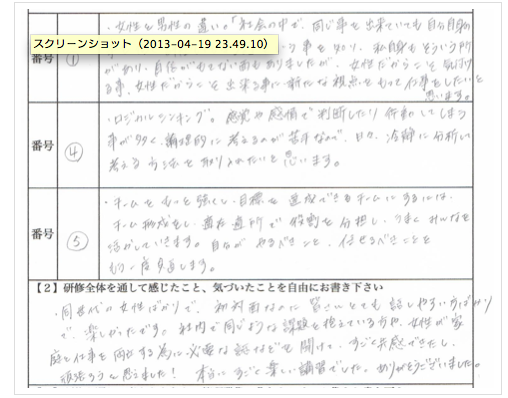 ・女性と男性の違い。「社会の中で、同じ事を出来ていても自分自身
スクリーンショット（2013-04-19 23.49.10）
番号 ① 事を知り、私自身もそういう所
があり、自信がもてない面もありましたが、女性だからこそ気付け
る事、女性だからこそ出来る事に新たな視点をもって仕事をしたいと
思います。
・ロジカルシンキング。感覚や感情で判断したり行動してしまう
番号 ④ 事が多く、論理的に考えるのが苦手なので、日々、冷静に分析して
考える方法を取り入れたいと思います。
・チームをもっと強くし、目標を達成できるチームにするには、
チーム形成をし、適材適所で役割を分担し、うまくみんなを
番号 ⑤ 活かしていきます。自分がやるべきこと、任せるべきことを
もう一度見直します。
【2】研修全体を通して感じたこと、気づいたことを自由にお書き下さい
・同世代の女性ばかりで、初対面なのに皆さんとても話しやすい方ばかり
で、楽しかったです。社内で同じような課題を抱えている方や、女性が家
庭と仕事を両立する為に必要な話などを聞けて、すごく共感できたし、
頑張ろうと思えました！ 本当にすごく楽しい講習でした。ありがとうございました。